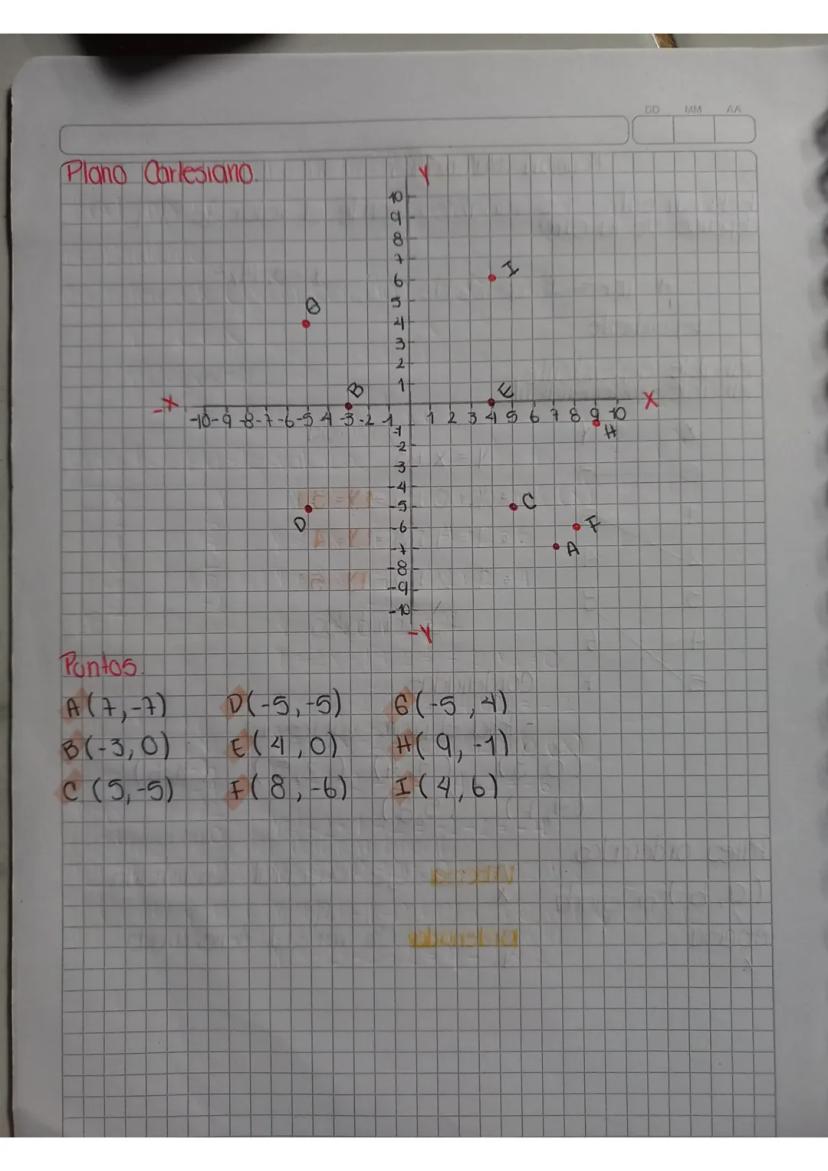 DD MM AA
Plano Cartesiano.
Y
10
9
8
7
6
5
4
3
2
1
I
G
B
E
-X
X
-10 -9 -8 -7 -6 -5 -4 -3 -2 -1 1 2 3 4 5 6 7 8 9 10
H
-1
-2
-3
-4
-5
-6
-7
-8
-9
-10
D
C
F
A
-Y
Puntos.
A(7,-7) D(-5,-5) G(-5,4)
B(-3,0) E(4,0) H(9,-1)
C(5,-5) F(8,-6) I(4,6)